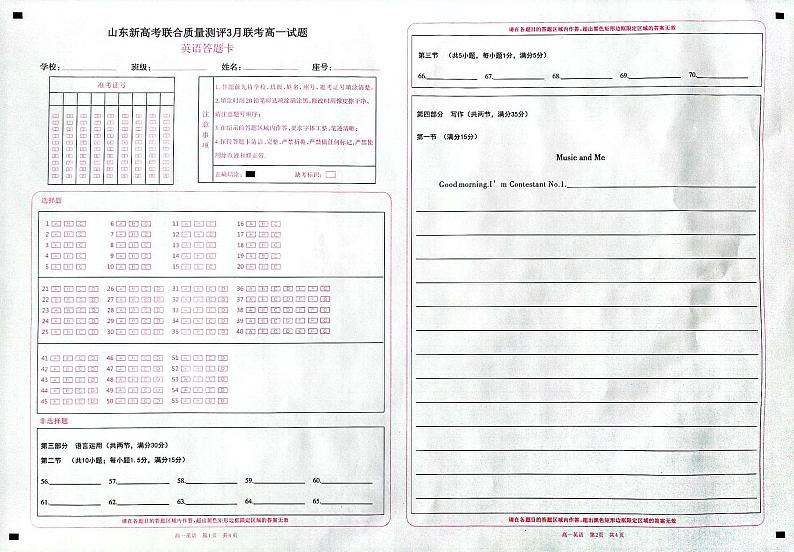 山东新高考联合质量测评3月联考高一试题
英语答题卡
学校： 班级： 姓名： 座号：
准考证号
注意事项
1.答题前先将学校,班级,姓名,座号,准考证号填涂清楚。
2.填涂时用2B铅笔将选项涂满涂黑,修改时用橡皮擦干净。
请注意题号顺序；
3.在提示的答题区域内作答,要求字体工整,笔迹清晰；
4.保持答题卡清洁、完整,严禁折叠,严禁做任何标记,严禁使
用涂改液和修正带。
正确填涂： 缺考标识：
选择题
1 A B C 6 A B C 11 A B C 16 A B C
2 A B C 7 A B C 12 A B C 17 A B C
3 A B C 8 A B C 13 A B C 18 A B C
4 A B C 9 A B C 14 A B C 19 A B C
5 A B C 10 A B C 15 A B C 20 A B C
21 A B C D 26 A B C D 31 A B C D 36 A B C D E F G
22 A B C D 27 A B C D 32 A B C D 37 A B C D E F G
23 A B C D 28 A B C D 33 A B C D 38 A B C D E F G
24 A B C D 29 A B C D 34 A B C D 39 A B C D E F G
25 A B C D 30 A B C D 35 A B C D 40 A B C D E F G
41 A B C D 46 A B C D 51 A B C D
42 A B C D 47 A B C D 52 A B C D
43 A B C D 48 A B C D 53 A B C D
44 A B C D 49 A B C D 54 A B C D
45 A B C D 50 A B C D 55 A B C D
非选择题
第三部分 语言运用（共两节，满分30分）
第二节 （共10小题；每小题1.5分，满分15分）
56. 57. 58. 59. 60.
61. 62. 63. 64. 65.
请在各题目的答题区域内作答,超出黑色矩形边框限定区域的答案无效
高一英语 第1页 共4页
请在各题目的答题区域内作答,超出黑色矩形边框限定区域的答案无效
第三节 （共5小题，每小题1分，满分5分）
66. 67. 68. 69. 70.
第四部分 写作（共两节，满分35分）
第一节 （满分15分）
Music and Me
Good morning.I’m Contestant No.1.
请在各题目的答题区域内作答,超出黑色矩形边框限定区域的答案无效
高一英语 第2页 共4页